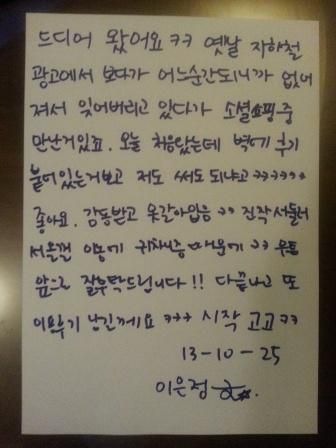 드디어 왔어요 ㅋㅋ 옛날 지하철
광고에서 보다가 어느순간되니까 없어
져서 잊어버리고 있다가 소셜쇼핑중
만난거있죠. 오늘 처음왔는데 벽에 후기
붙어있는거보고 저도 써도 되냐고 ㅋㅋㅋㅋㅋㅋ
좋아요. 감동받고 옷갈아입음 ㅋㅋ 진작서둘러
귀차니즘 때문에 ㅋㅋ
앞으로 잘부탁드립니다!! 다끝나고 또
이용후기 남길께요 ㅋㅋㅋ 시작 고고 ㅋㅋ
13-10-25
이은정